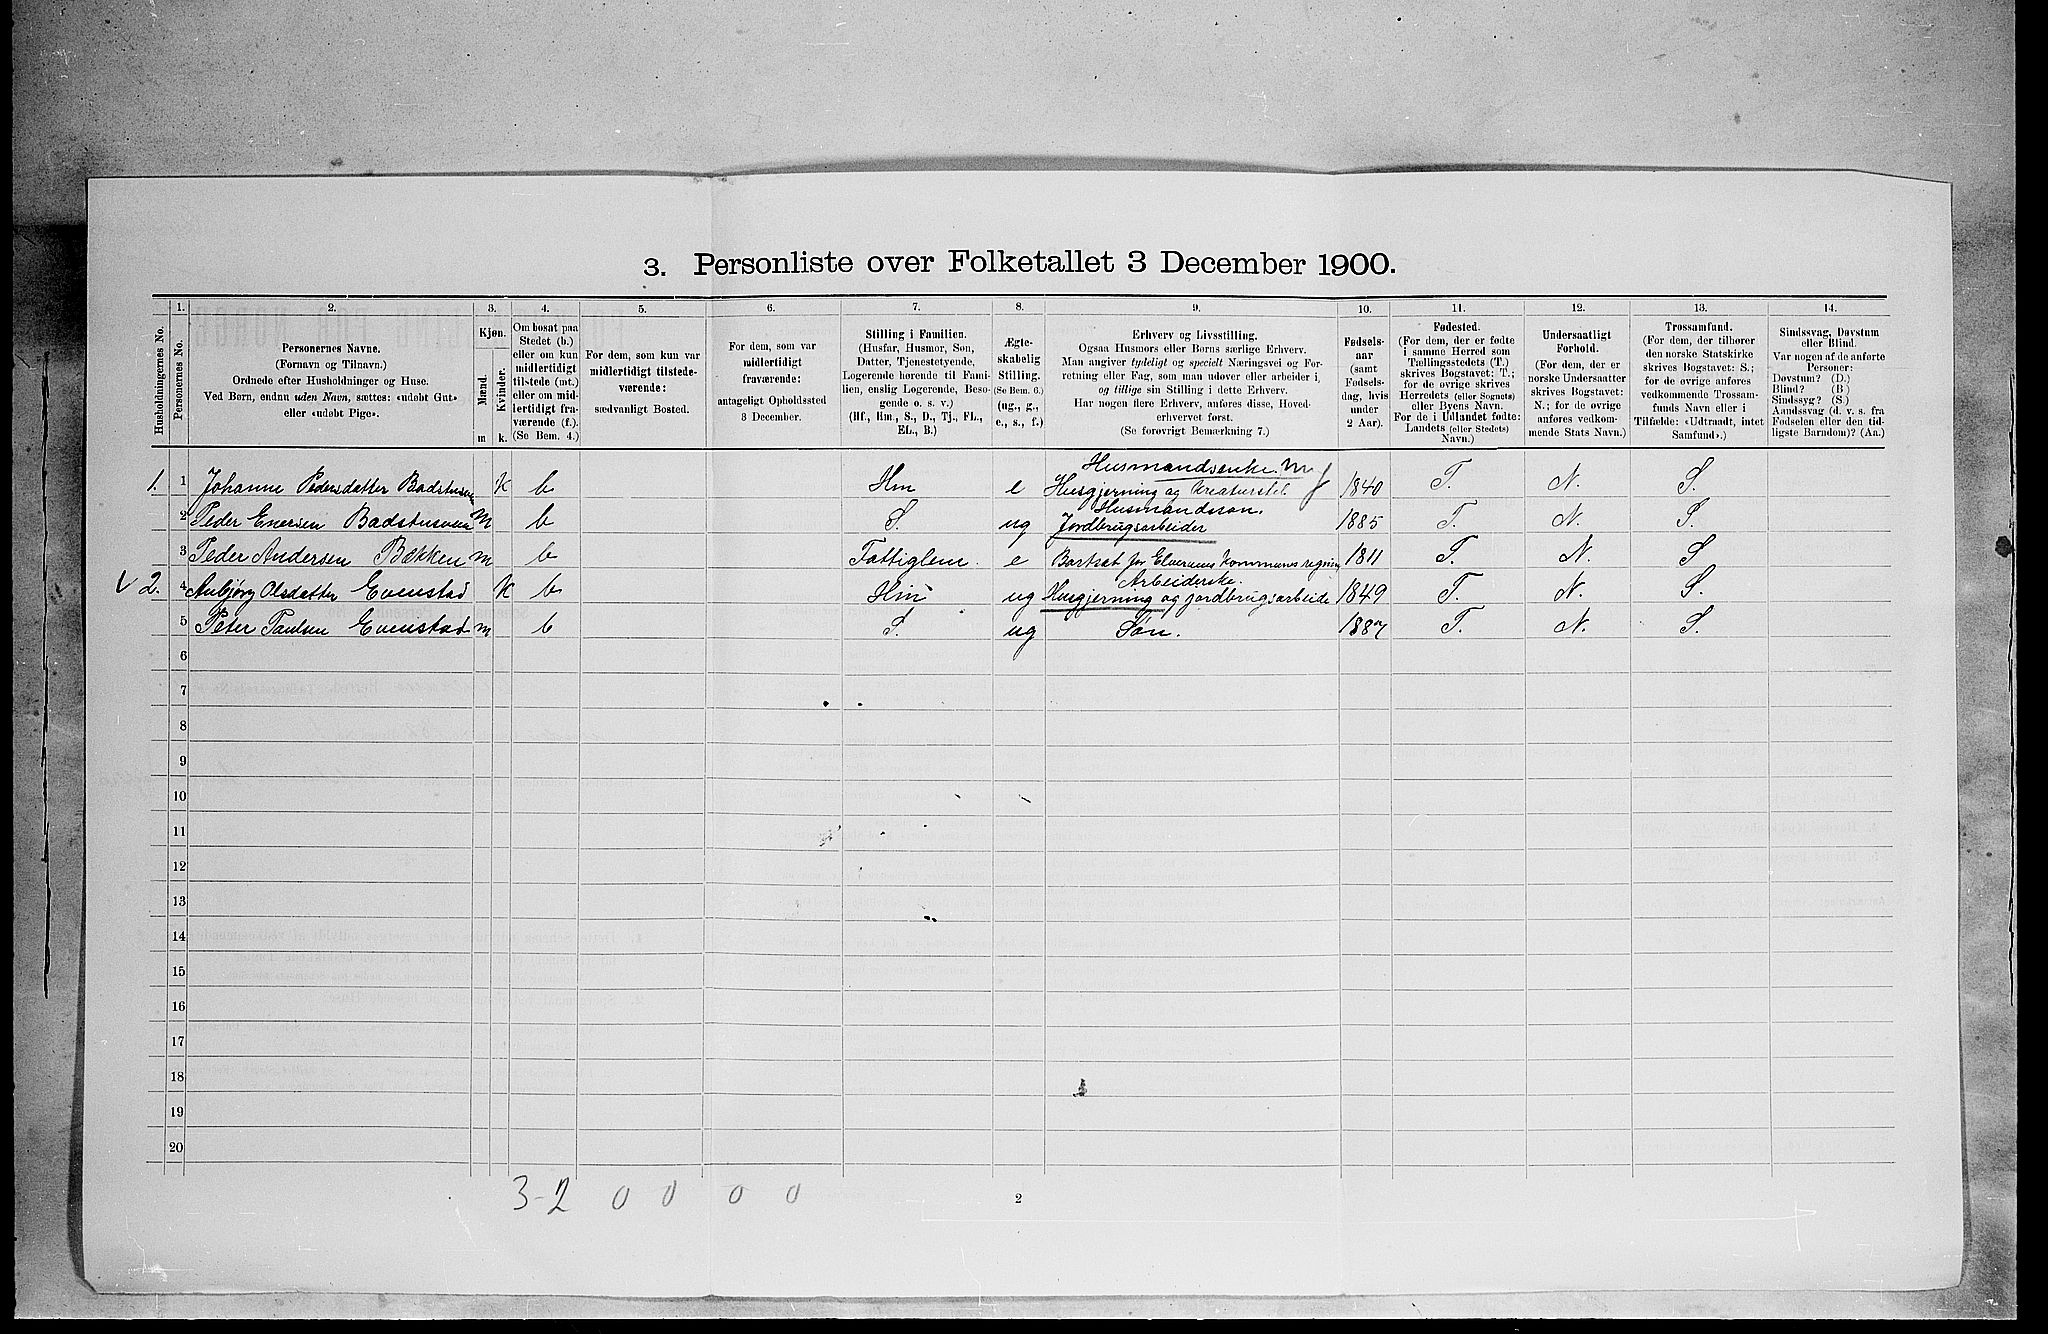 3. Personliste over Folketallet 3 December 1900.
1. 2. 3. 4. 5. 6. 7. 8. 9. 10. 11. 12. 13. 14.
Husholdningernes No.
Personernes No.
Personernes Navne.
(Fornavn og Tilnavn.)
Ordnede efter Husholdninger og Huse.
Ved Børn, endnu uden Navn, sættes: «udøbt Gut»
eller «udøbt Pige».
Kjøn.
Mænd.
Kvinder.
m k.
Om bosat paa
Stedet (b.)
eller om kun
midlertidigt
tilstede (mt.)
eller om mid-
lertidigt fra-
værende (f.).
(Se Bem. 4.)
For dem, som kun var
midlertidigt tilstede-
værende:
sædvanligt Bosted.
For dem, som var
midlertidigt
fraværende:
antageligt Opholdssted
3 December.
Stilling i Familien.
(Husfar, Husmor, Søn,
Datter, Tjenestetyende,
Logerende hørende til Fami-
lien, enslig Logerende, Besø-
gende o. s. v.)
(Hf., Hm., S., D., Tj., FL.,
EL., B.)
Ægte-
skabelig
Stilling.
(Se Bem. 6.)
(ug., g.,
e., s., f.)
Erhverv og Livsstilling.
Ogsaa Husmors eller Børns særlige Erhverv.
Man angiver tydeligt og specielt Næringsvei og For-
retning eller Fag, som man udøver eller arbeider i,
og tillige sin Stilling i dette Erhverv.
Har nogen flere Erhverv, anføres disse, Hoved-
erhvervet først.
(Se forøvrigt Bemærkning 7.)
Fødsels-
aar
(samt
Fødsels-
dag, hvis
under
2 Aar).
Fødested.
(For dem, der er fødte
i samme Herred som
Tællingsstedets (T.)
skrives Bogstavet: T.;
for de øvrige skrives
Herredets (eller Sognets)
eller Byens Navn.
For de i Udlandet fødte:
Landets (eller Stedets)
Navn.)
Undersaatligt
Forhold.
(For dem, der er
norske Undersaatter
skrives Bogstavet:
N.; for de øvrige
anføres vedkom-
mende Stats Navn.)
Trossamfund.
(For dem, der tilhører
den norske Statskirke
skrives Bogstavet: S.;
for de øvrige anføres
vedkommende Trossam-
funds Navn eller i
Tilfælde: «Udtraadt, intet
Samfund».)
Sindssvag, Døvstum
eller Blind.
Var nogen af de anførte
Personer:
Døvstum? (D.)
Blind? (B)
Sindssyg? (S.)
Aandssvag (d. v. s. fra
Fødselen eller den tid-
ligste Barndom)? (Aa.)
Husmandsenke. m
1. 1 Johanne Pedersdatter Badstuen K b Hm e Husgjerning og Kreaturstel 1840 T. N. S.
Husmandssøn.
2 Peder Badstusveen m b S. ug Jordbrugsarbeider 1885 T. N. S.
3 Peder Andersen Bækken m b Fattiglem. e Bortsat for Elverums Kommunes regning 1811 T. N. S
Arbeiderske.
v 2. 4 Anbjørg Olsdatter Evenstad K b Hm ug Husgjerning og jordbrugsarbeide 1849 T. N. S.
5 Peter Paulsen Evenstad m b S. ug Søn. 1887 T. N. S.
6
7
8
9
10
11
12
13
14
15
16
17
18
19
20
3-2 0 0 0 0
2